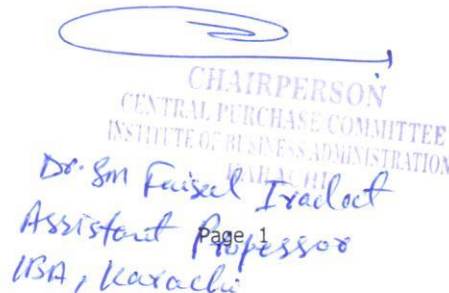 CHAIRPERSON
CENTRAL PURCHASE COMMITTEE
INSTITUTE OF BUSINESS ADMINISTRATION
KARACHI
Dr. SM Faisal Iradat
Assistant Professor
Page 1
IBA, Karachi